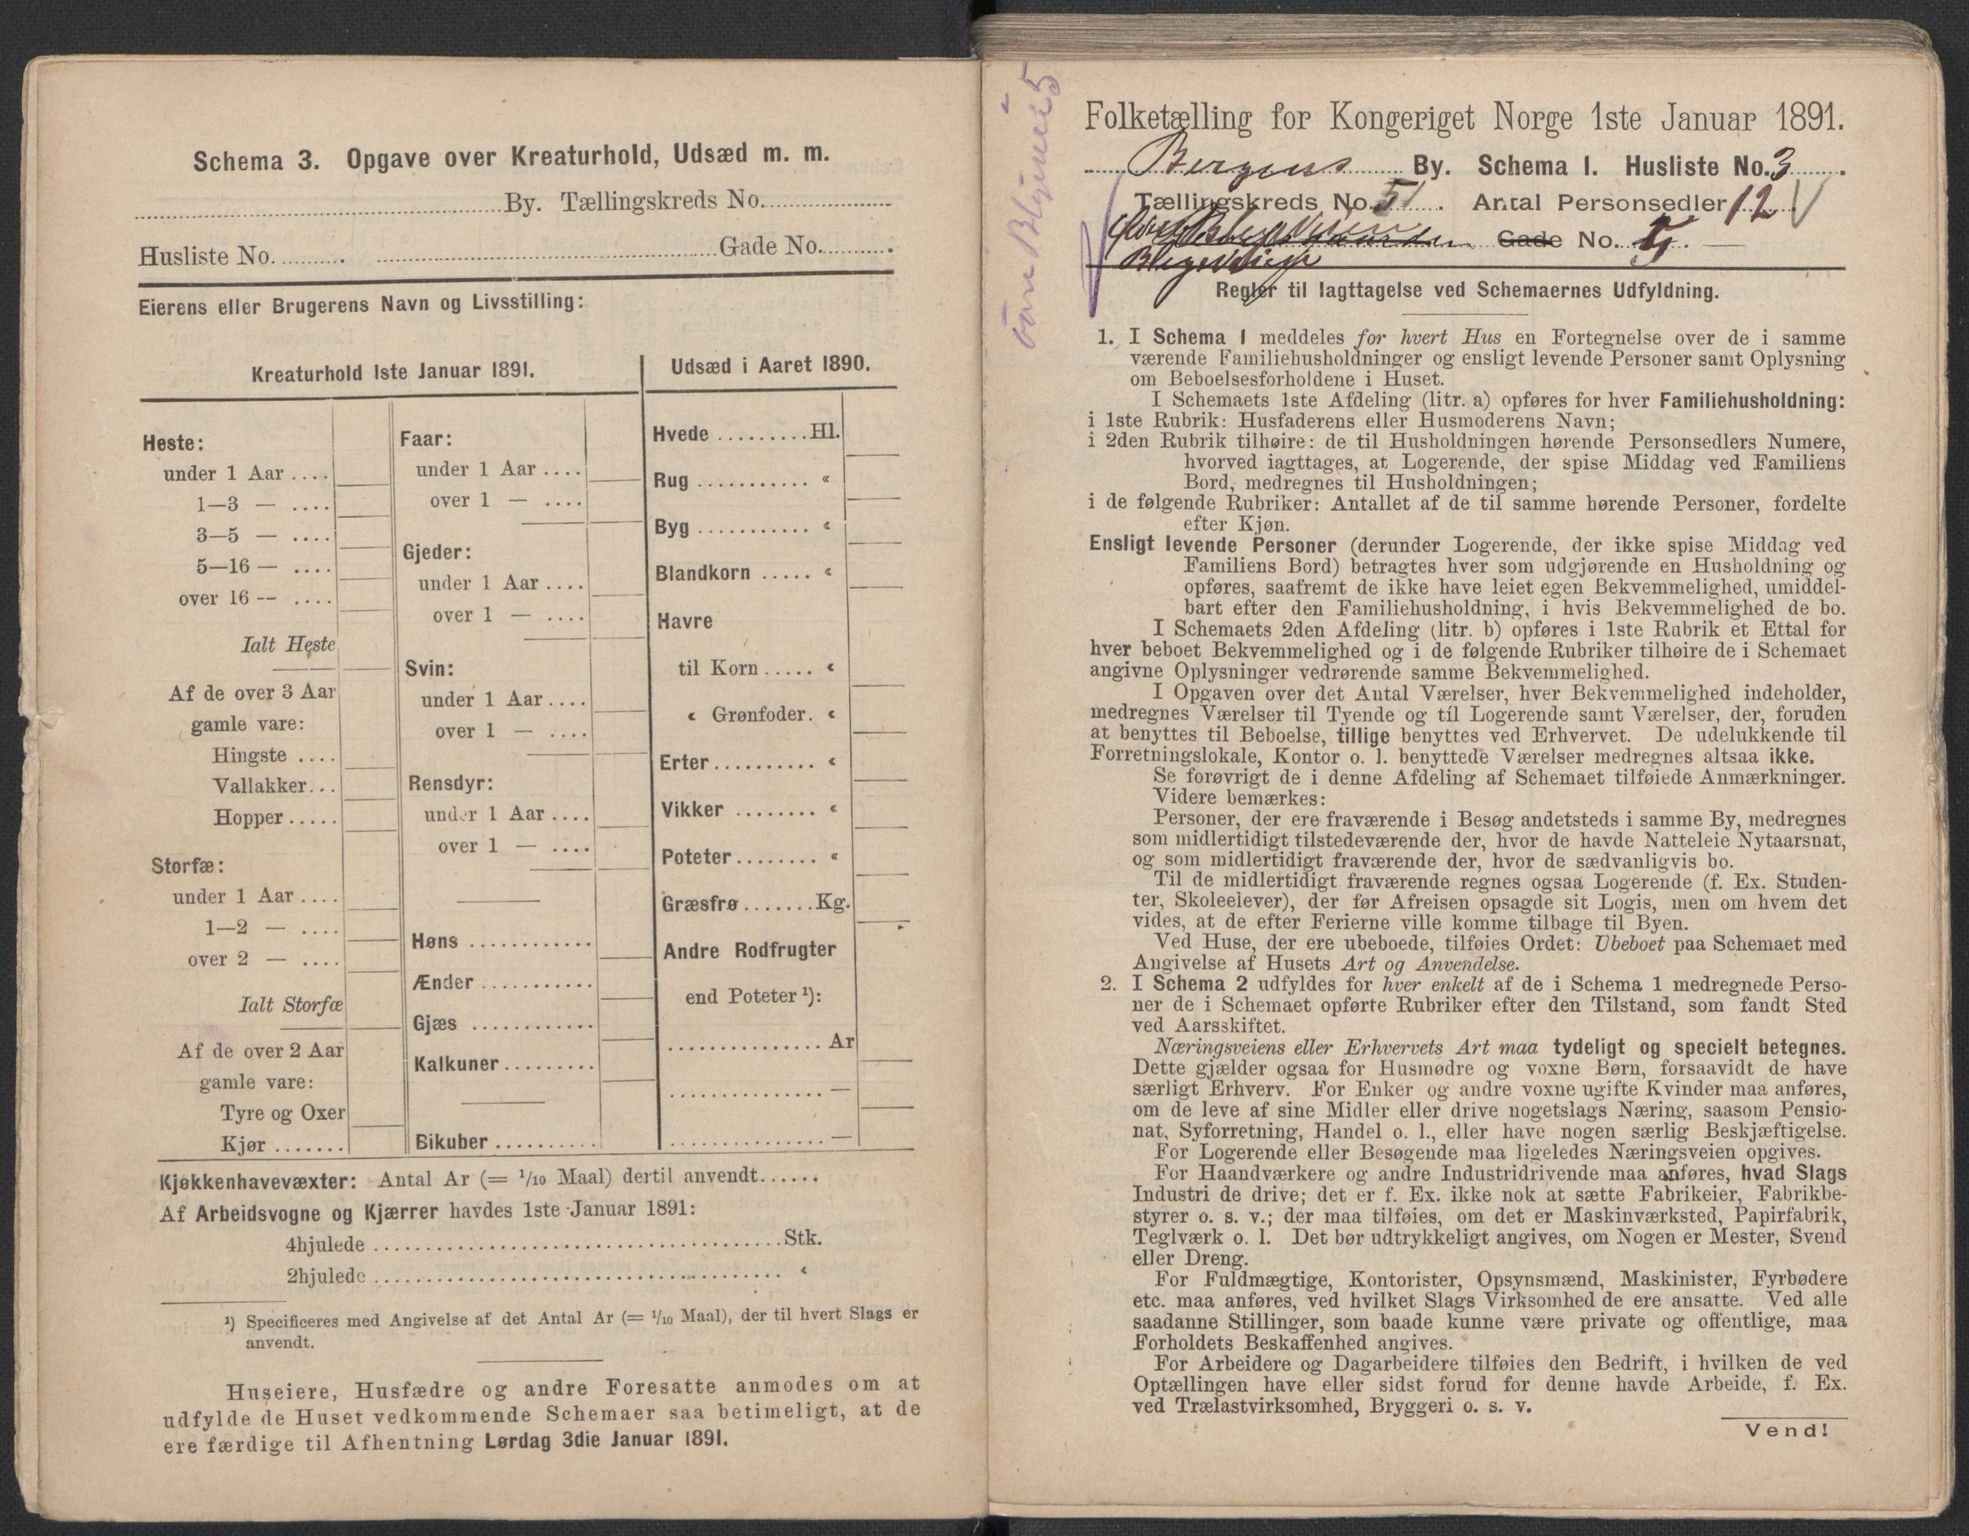 Schema 3. Opgave over Kreaturhold, Udsæd m. m.
By. Tællingskreds No.
Husliste No. Gade No.
Eierens eller Brugerens Navn og Livsstilling:
Kreaturhold 1ste Januar 1891.
Heste:
under 1 Aar ....
1—3 — ....
3—5 — ....
5—16 — ....
over 16 — ....
Ialt Heste
Af de over 3 Aar
gamle vare:
Hingste ....
Vallakker...
Hopper.....
Storfæ:
under 1 Aar ....
1—2 — ....
over 2 — ....
Ialt Storfæ
Af de over 2 Aar
gamle vare:
Tyre og Oxer
Kjør .......
Faar:
under 1 Aar ....
over 1 — ....
Gjeder:
under 1 Aar ....
over 1 — ....
Svin:
under 1 Aar ....
over 1 — ....
Rensdyr:
under 1 Aar ....
over 1 — ....
Høns ............
Ænder ...........
Gjæs ............
Kalkuner.........
Bikuber..........
Udsæd i Aaret 1890.
Hvede .........Hl.
Rug ........... «
Byg ........... «
Blandkorn ..... «
Havre
til Korn ..... «
« Grønfoder. «
Erter.......... «
Vikker ........ «
Poteter........ «
Græsfrø.......Kg.
Andre Rodfrugter
end Poteter ¹):
............... Ar
............... —
............... —
Kjøkkenhavevæxter: Antal Ar (= 1/10 Maal) dertil anvendt......
Af Arbeidsvogne og Kjærrer havdes 1ste Januar 1891:
4hjulede ........................................Stk.
2hjulede ........................................ «
¹) Specificeres med Angivelse af det Antal Ar (= 1/10 Maal), der til hvert Slags er
anvendt.
Huseiere, Husfædre og andre Foresatte anmodes om at
udfylde de Huset vedkommende Schemaer saa betimeligt, at de
ere færdige til Afhentning Lørdag 3die Januar 1891.
Folketælling for Kongeriget Norge 1ste Januar 1891.
Bergens By. Schema 1. Husliste No. 3
Tællingskreds No. 5 . Antal Personsedler 12
Gade No.
Regler til Iagttagelse ved Schemaernes Udfyldning.
1. I Schema 1 meddeles for hvert Hus en Fortegnelse over de i samme
værende Familiehusholdninger og ensligt levende Personer samt Oplysning
om Beboelsesforholdene i Huset.
I Schemaets 1ste Afdeling (litr. a) opføres for hver Familiehusholdning:
i 1ste Rubrik: Husfaderens eller Husmoderens Navn;
i 2den Rubrik tilhøire: de til Husholdningen hørende Personsedlers Numere,
hvorved iagttages, at Logerende, der spise Middag ved Familiens
Bord, medregnes til Husholdningen;
i de følgende Rubriker: Antallet af de til samme hørende Personer, fordelte
efter Kjøn.
Ensligt levende Personer (derunder Logerende, der ikke spise Middag ved
Familiens Bord) betragtes hver som udgjørende en Husholdning og
opføres, saafremt de ikke have leiet egen Bekvemmelighed, umiddel-
bart efter den Familiehusholdning, i hvis Bekvemmelighed de bo.
I Schemaets 2den Afdeling (litr. b) opføres i 1ste Rubrik et Ettal for
hver beboet Bekvemmelighed og i de følgende Rubriker tilhøire de i Schemaet
angivne Oplysninger vedrørende samme Bekvemmelighed.
I Opgaven over det Antal Værelser, hver Bekvemmelighed indeholder,
medregnes Værelser til Tyende og til Logerende samt Værelser, der, foruden
at benyttes til Beboelse, tillige benyttes ved Erhvervet. De udelukkende til
Forretningslokale, Kontor o. l. benyttede Værelser medregnes altsaa ikke.
Se forøvrigt de i denne Afdeling af Schemaet tilføiede Anmærkninger.
Videre bemærkes:
Personer, der ere fraværende i Besøg andetsteds i samme By, medregnes
som midlertidigt tilstedeværende der, hvor de havde Natteleie Nytaarsnat,
og som midlertidigt fraværende der, hvor de sædvanligvis bo.
Til de midlertidigt fraværende regnes ogsaa Logerende (f. Ex. Studen-
ter, Skoleelever), der før Afreisen opsagde sit Logis, men om hvem det
vides, at de efter Ferierne ville komme tilbage til Byen.
Ved Huse, der ere ubeboede, tilføies Ordet: Ubeboet paa Schemaet med
Angivelse af Husets Art og Anvendelse.
2. I Schema 2 udfyldes for hver enkelt af de i Schema 1 medregnede Perso-
ner de i Schemaet opførte Rubriker efter den Tilstand, som fandt Sted
ved Aarsskiftet.
Næringsveiens eller Erhvervets Art maa tydeligt og specielt betegnes.
Dette gjælder ogsaa for Husmødre og voxne Børn, forsaavidt de have
særligt Erhverv. For Enker og andre voxne ugifte Kvinder maa anføres,
om de leve af sine Midler eller drive nogetslags Næring, saasom Pensio-
nat, Syforretning, Handel o. l., eller have nogen særlig Beskjæftigelse.
For Logerende eller Besøgende maa ligeledes Næringsveien opgives.
For Haandværkere og andre Industridrivende maa anføres, hvad Slags
Industri de drive; det er f. Ex. ikke nok at sætte Fabrikeier, Fabrikbe-
styrer o. s. v.; der maa tilføies, om det er Maskinværksted, Papirfabrik,
Teglværk o. l. Det bør udtrykkeligt angives, om Nogen er Mester, Svend
eller Dreng.
For Fuldmægtige, Kontorister, Opsynsmænd, Maskinister, Fyrbødere
etc. maa anføres, ved hvilket Slags Virksomhed de ere ansatte. Ved alle
saadanne Stillinger, som baade kunne være private og offentlige, maa
Forholdets Beskaffenhed angives.
For Arbeidere og Dagarbeidere tilføies den Bedrift, i hvilken de ved
Optællingen have eller sidst forud for denne havde Arbeide, f. Ex.
ved Trælastvirksomhed, Bryggeri o. s. v.
Vend!